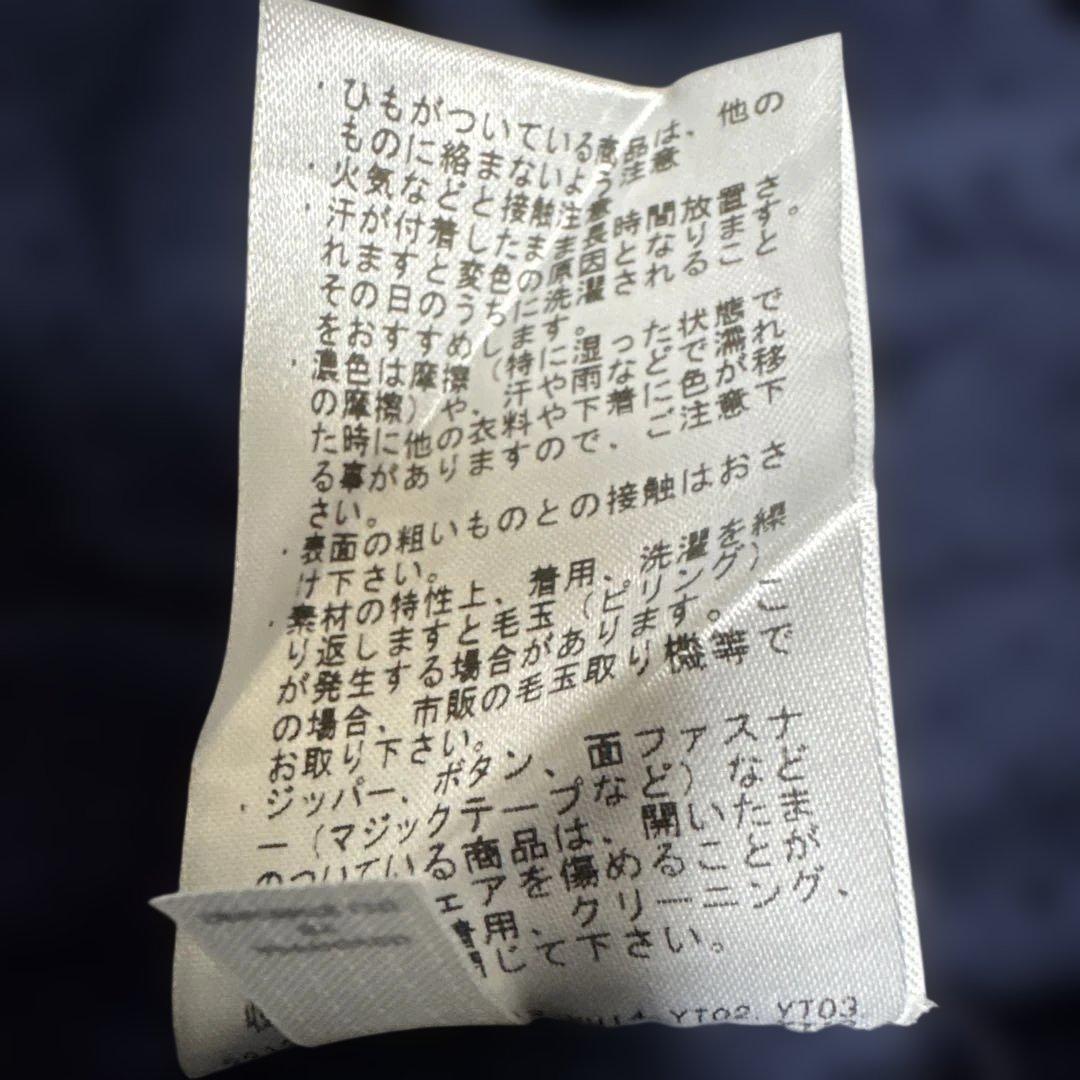 ・ひもがついている商品は、他の
ものに絡まないよう注意
・火気などと接触注意
・汗が付着したまま長時間放置さ
れますと変色の原因となります。
その日のうちに洗濯されること
をおすすめします。
・濃色は摩擦(特に湿った状態で
の摩擦)や、汗や雨などで濡れ
た時に他の衣料や下着に色が移
る事がありますので、ご注意下
さい。
・表面の粗いものとの接触はおさ
け下さい。
・素材の特性上、着用、洗濯を繰
り返しますと毛玉(ピリング)
が発生する場合があります。こ
の場合、市販の毛玉取り機等で
お取り下さい。
・ジッパー、ボタン、面ファスナ
ー(マジックテープなど)など
のついている商品は、開いたま
ェアを傷めることが
着用、クリーニング、
閉じて下さい。
YT02 YT03